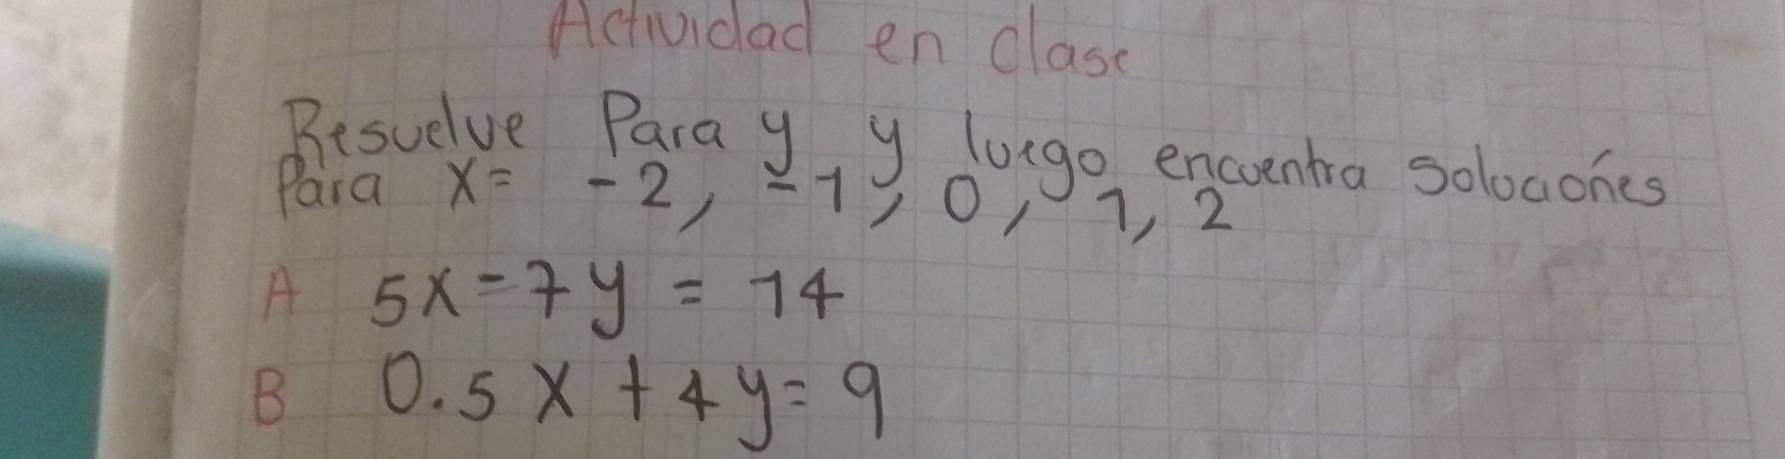 Actividad en clase
Resuelve Para y y luego encuentra soluciones
Para x= -2, -1, 0, 1, 2
A 5x-7y = 14
B 0.5x + 4y= 9